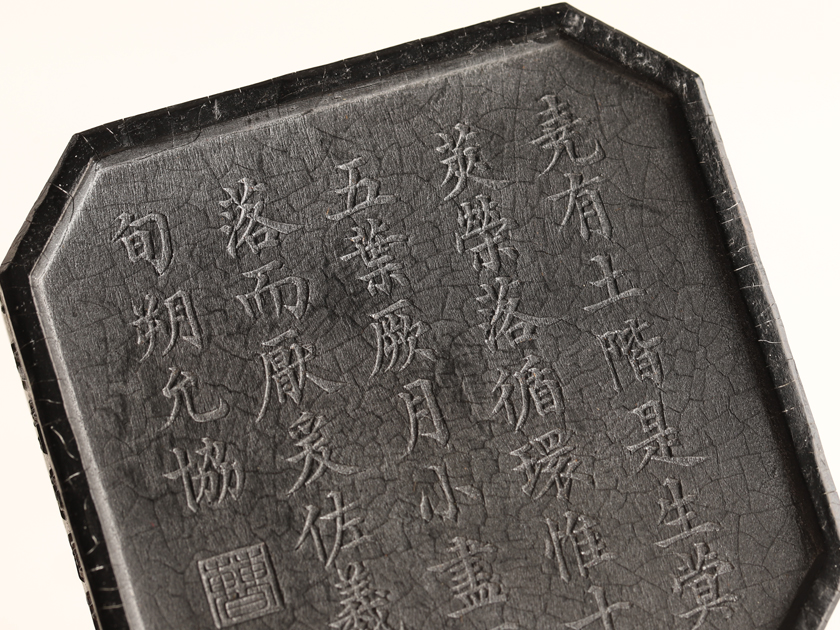 堯有土階是生蓂
莢榮落循環惟十
五葉厥月小盡
落而厭爰佐羲
旬朔允協